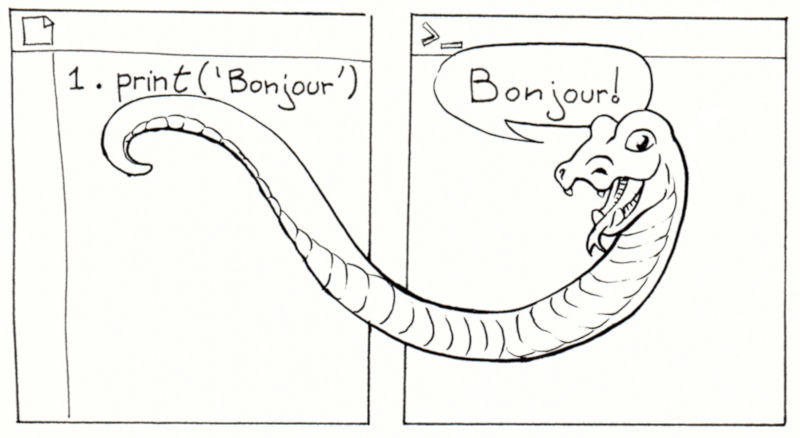 1. print('Bonjour')
>_
Bonjour!